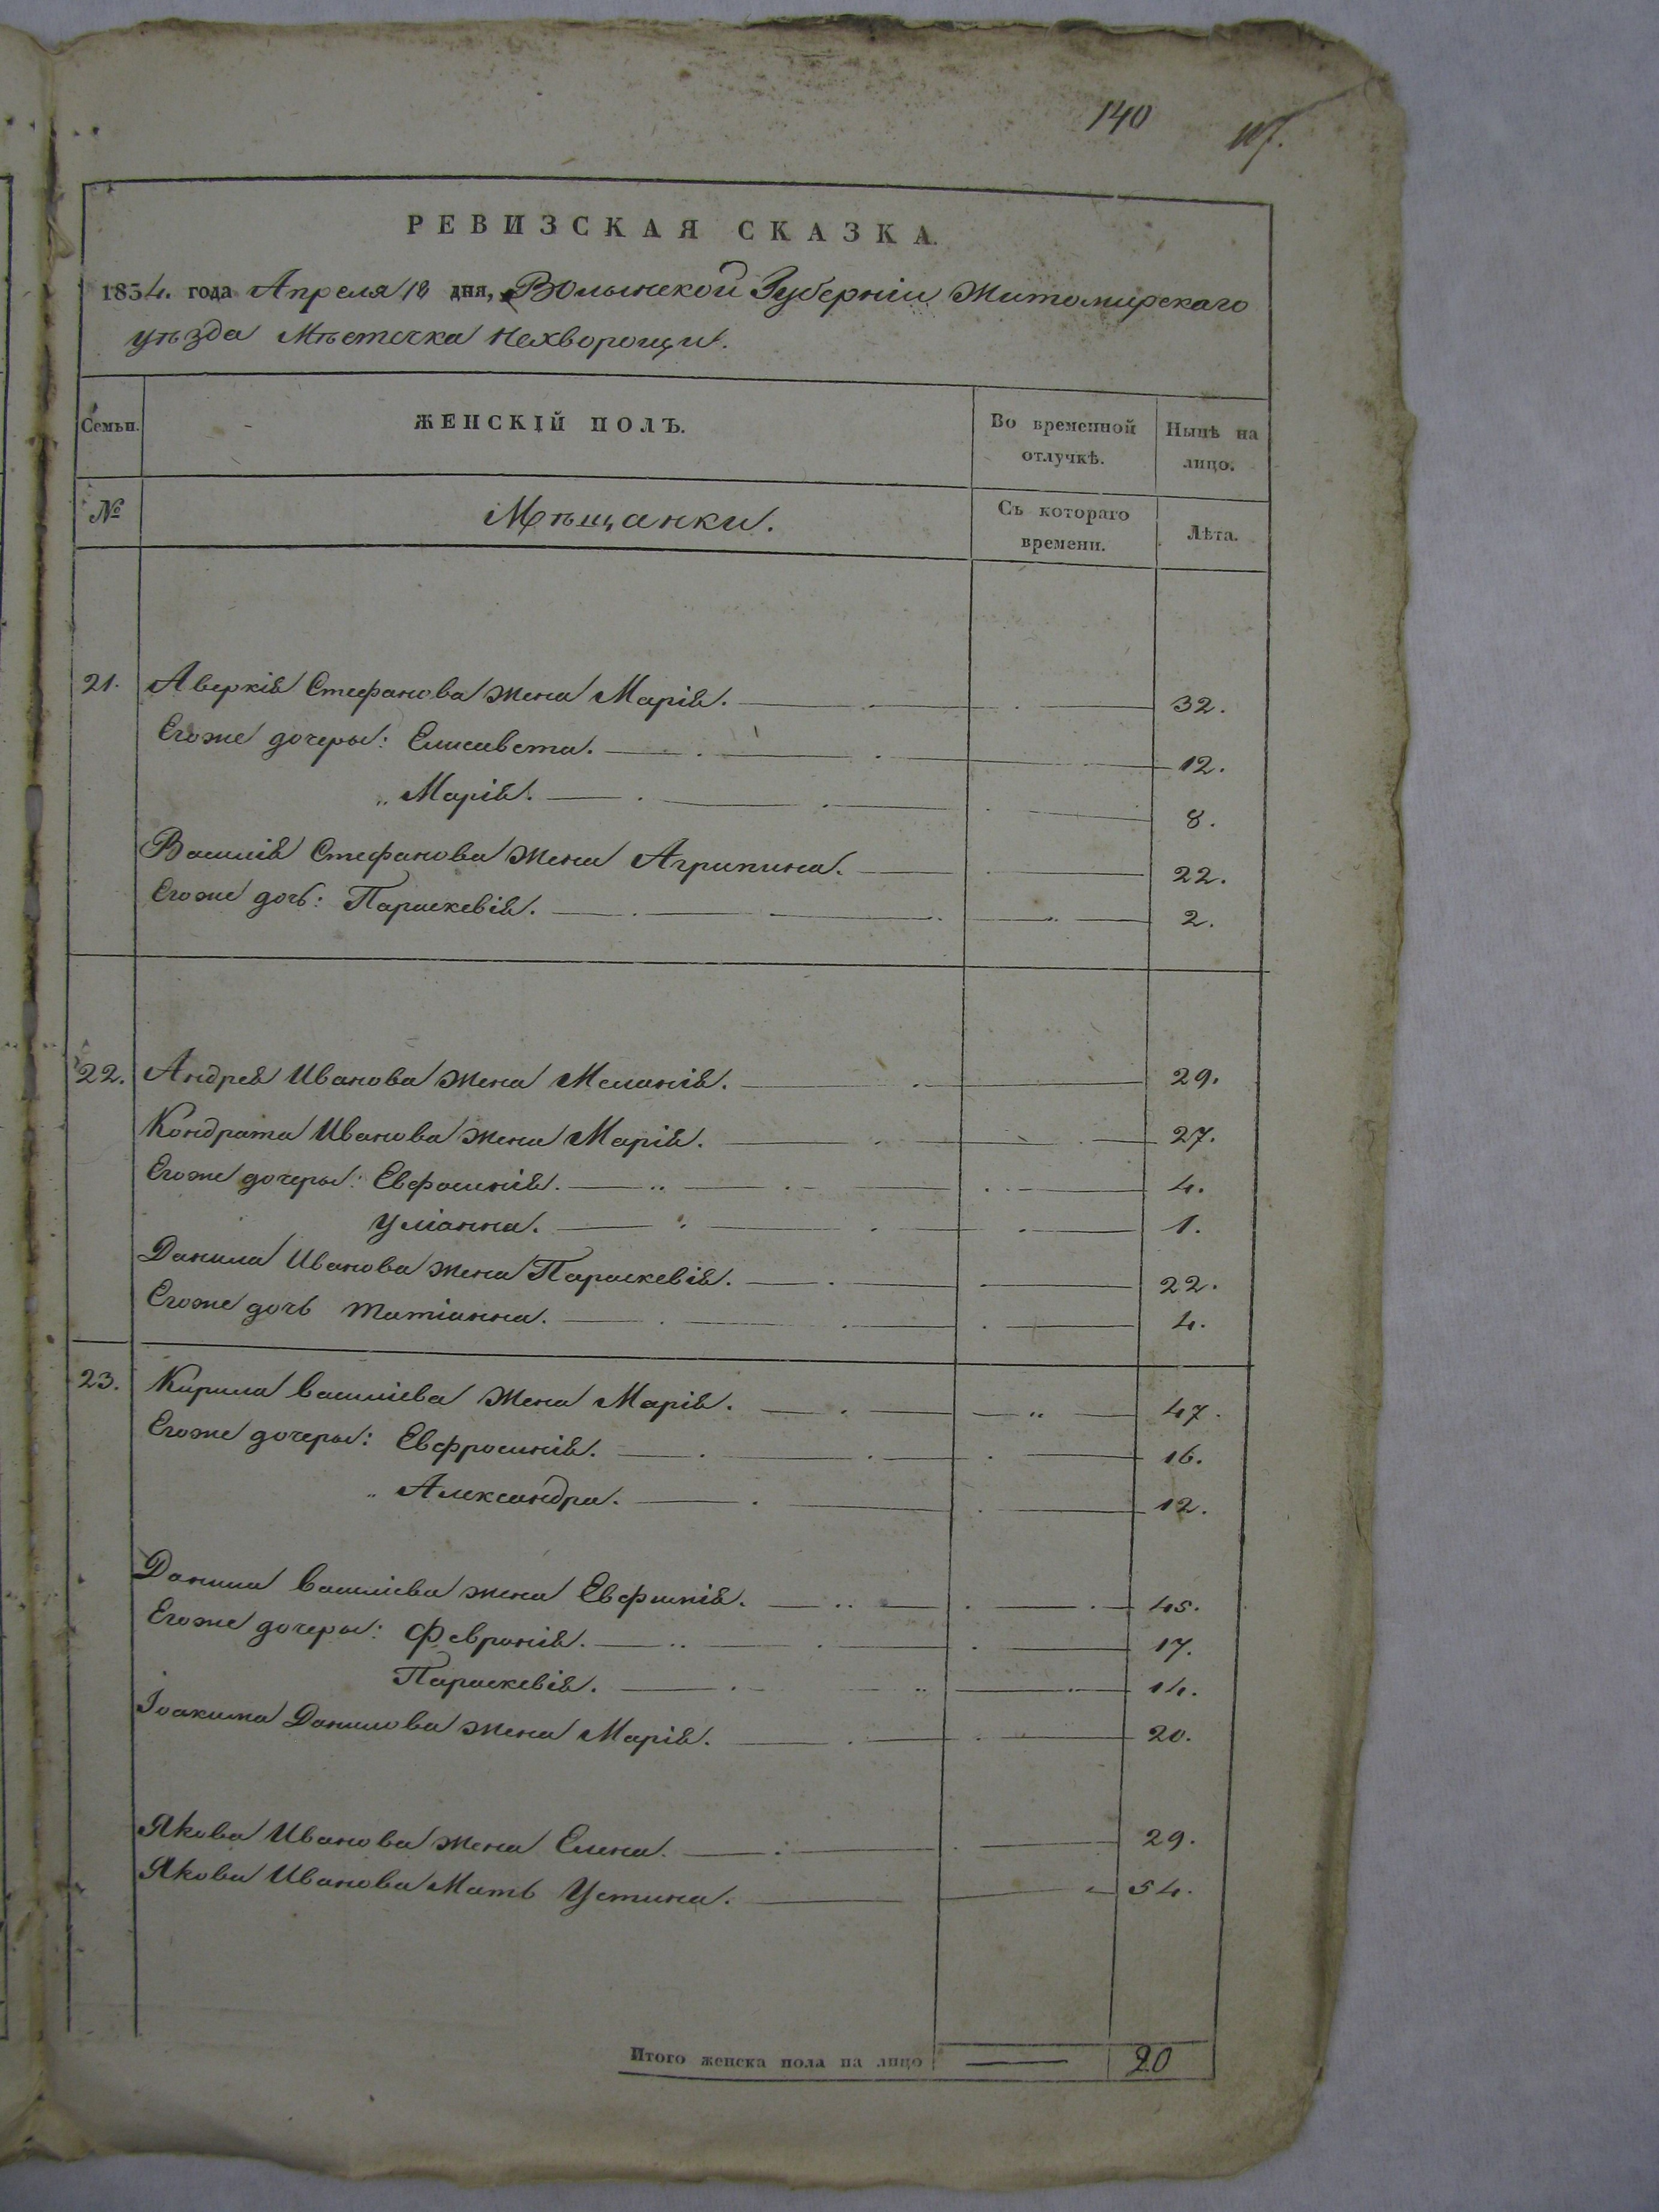 140
107.
РЕВИЗСКАЯ СКАЗКА.
1834. года Апреля 18 дня, Волынской Губерніи Житомирскаго
уѣзда Мѣстечка Нехворощи.
Семьи. ЖЕНСКІЙ ПОЛЪ. Во временной отлучкѣ. Нынѣ на лицо.
№ Мѣщанки. Съ котораго времени. Лѣта.
21. Аверкія Стефанова жена Марія. 32.
Егоже дочеры: Елисавета. 12.
„ Марія. 8.
Василія Стефанова жена Агрипина. 22.
Егоже дочь: Параскевія. 2.
22. Андрея Иванова жена Меланія. 29.
Кондрата Иванова жена Марія. 27.
Егоже дочеры: Евфосинія. 4.
Уліанна. 1.
Данила Иванова жена Параскевія. 22.
Егоже дочь Татіанна. 4.
23. Кирила Василіева жена Марія. 47.
Егоже дочеры: Евфросинія. 16.
„ Александра. 12.
Данила Василіева жена Евфимія. 45.
Егоже дочеры: Февронія. 17.
Параскевія. 14.
Іоакима Данилова жена Марія. 20.
Якова Иванова жена Елена. 29.
Якова Иванова Мать Устина. 54.
Итого женска пола на лицо 20